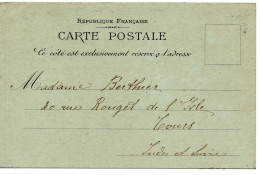 RÉPUBLIQUE FRANÇAISE
CARTE POSTALE
Ce côté est exclusivement réservé à l'adresse
Madame Berthier
40 rue Rouget de l'Isle
Tours
Indre et Loire